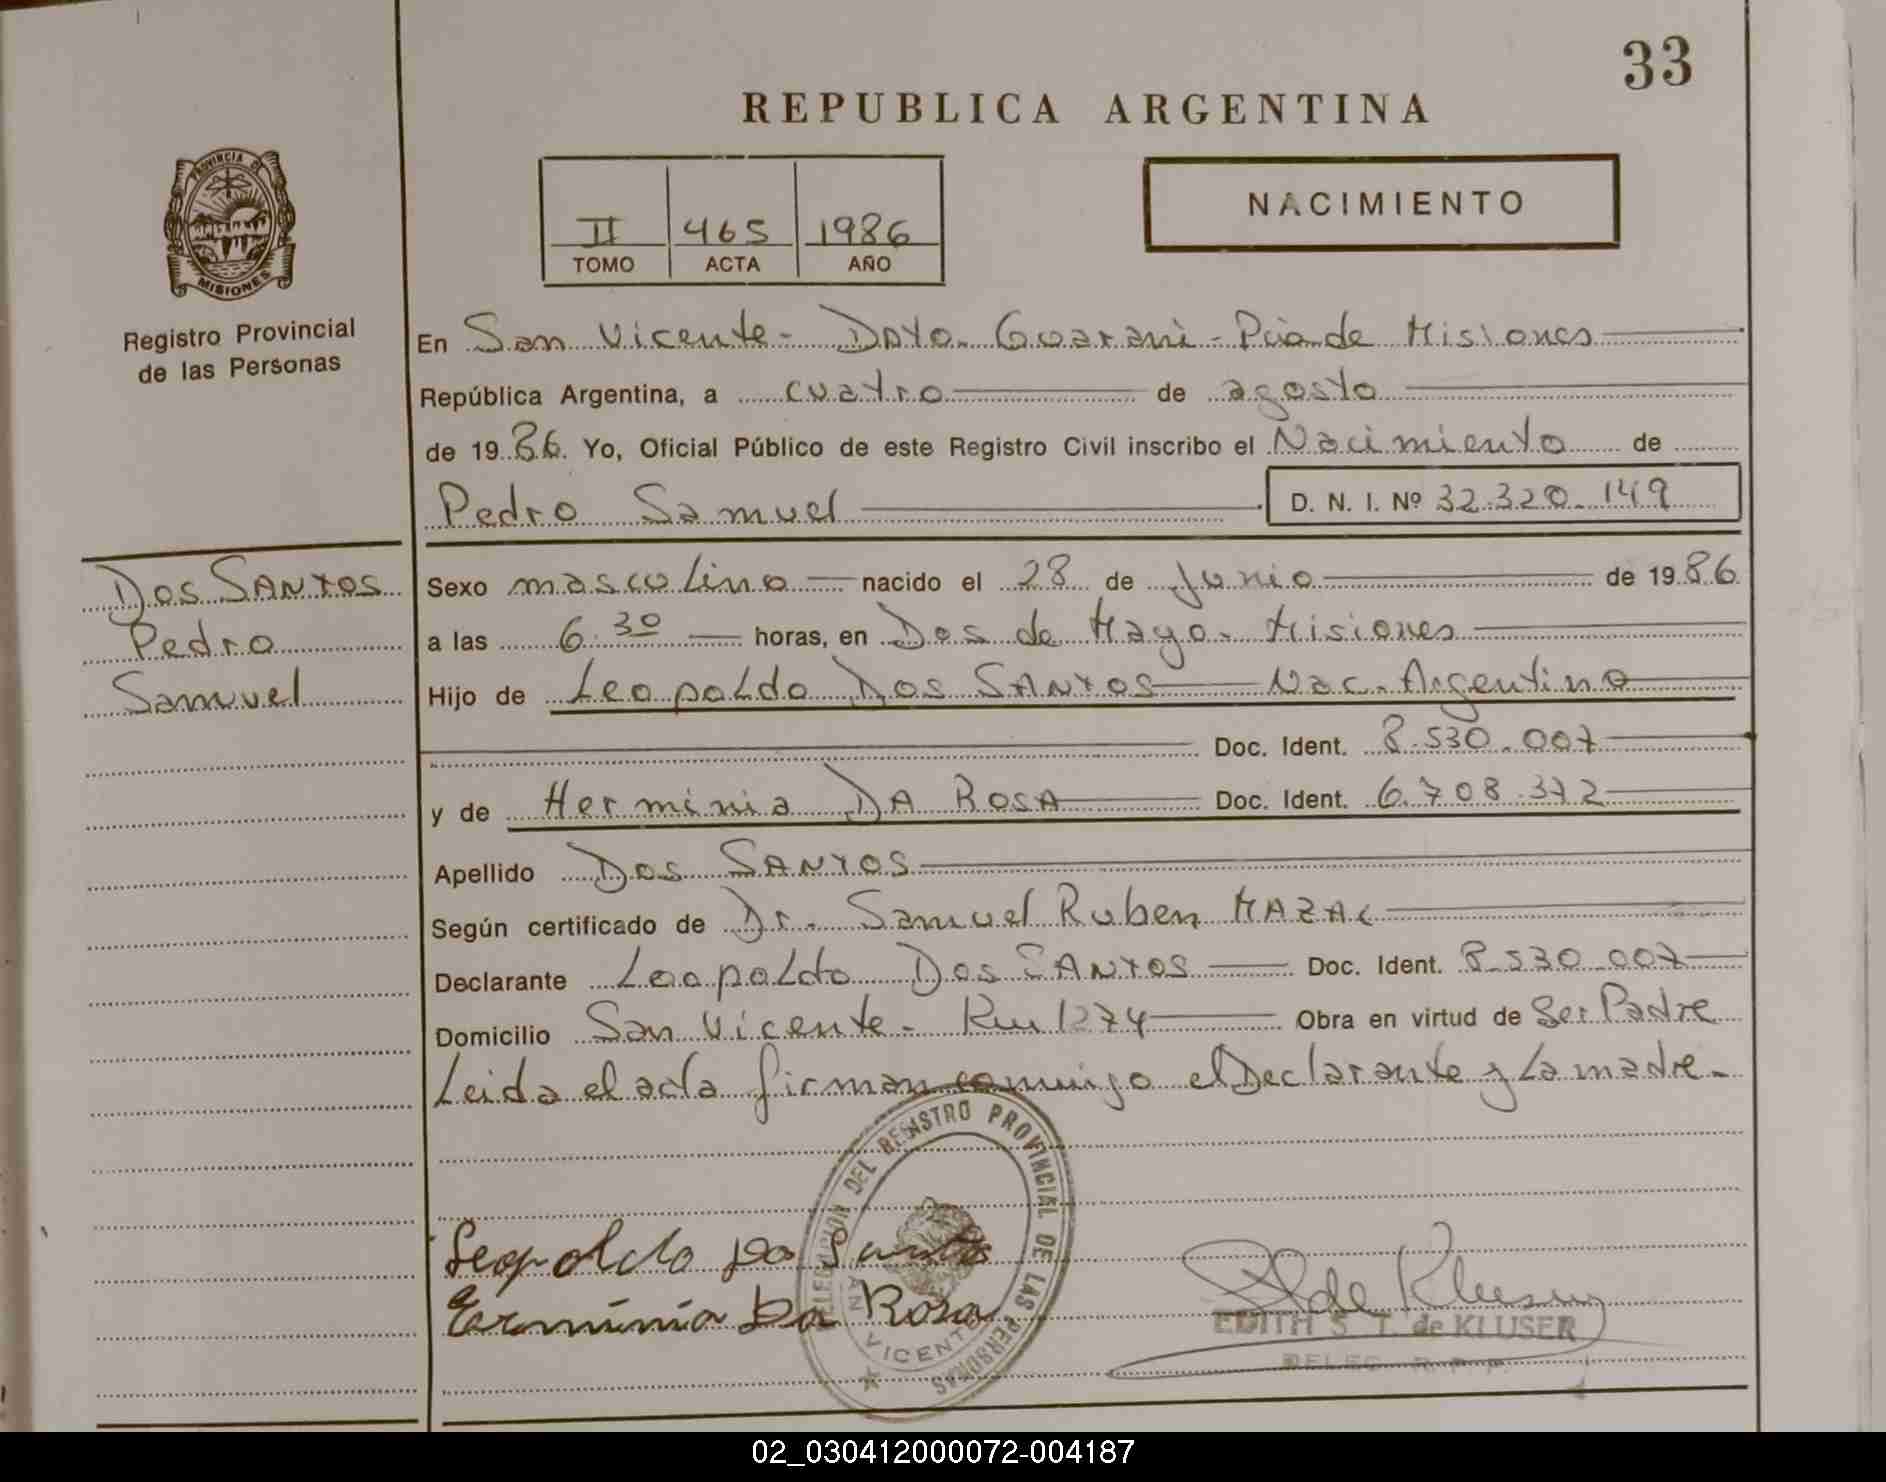 33
REPUBLICA ARGENTINA
PROVINCIA DE
MISIONES
Registro Provincial
de las Personas
II 465 1986
TOMO ACTA AÑO
NACIMIENTO
En San Vicente - Dpto. Guaraní - Pcia de Misiones
República Argentina, a cuatro de agosto
de 1986. Yo, Oficial Público de este Registro Civil inscribo el Nacimiento de
Pedro Samuel D. N. I. Nº 32.320.149
Dos SANTOS
Pedro
Samuel
Sexo masculino nacido el 28 de Junio de 1986
a las 6.30 horas, en Dos de Mayo - Misiones
Hijo de Leopoldo Dos SANTOS Nac. Argentino
Doc. Ident. 8.530.007
y de Herminia DA ROSA Doc. Ident. 6.708.372
Apellido Dos SANTOS
Según certificado de Dr. Samuel Ruben MAZAL
Declarante Leopoldo Dos SANTOS Doc. Ident. 8.530.007
Domicilio San Vicente - Km 1274 Obra en virtud de Ser Padre
Leida el acta firman conmigo el Declarante y La madre -
DELEGACION DEL REGISTRO PROVINCIAL DE LAS PERSONAS
SAN VICENTE
Leopoldo Do Santos
Erminia Da Rosa
de Kluser
EDITH S. T. de KLUSER
DELEG. R. P. P.
02_030412000072-004187